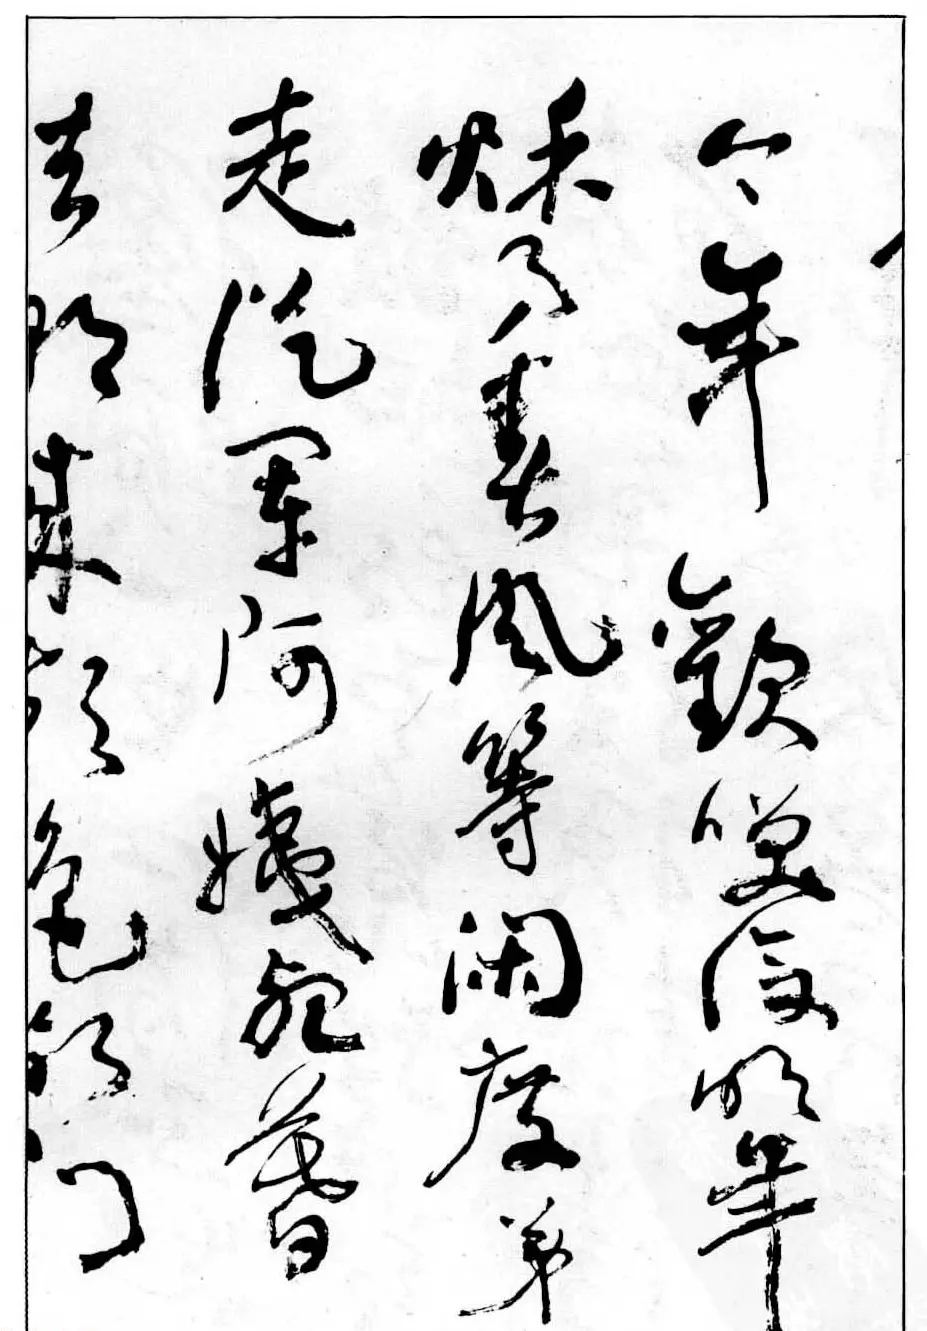 今年歡笑復明年
秌月春風等閑度弟
走從軍阿姨死暮
去朝來顏色故門